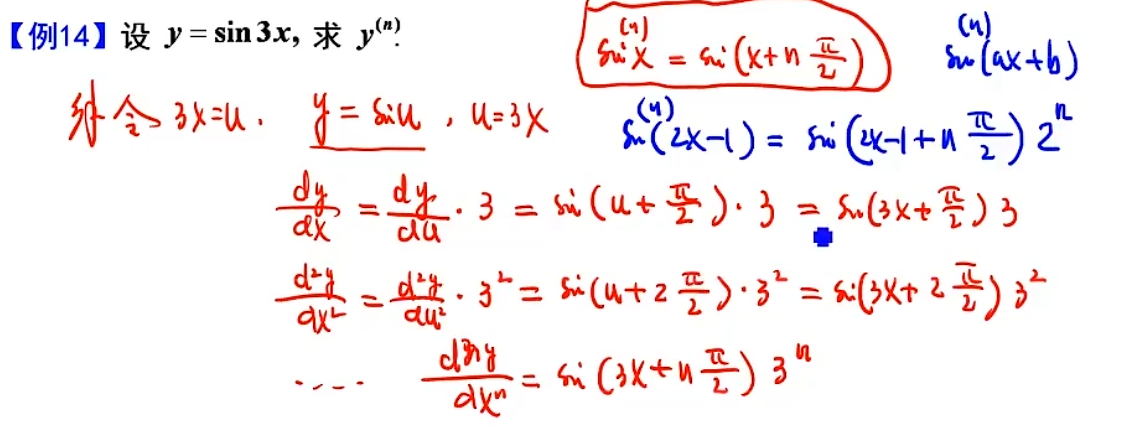 【例14】设 y = sin 3x, 求 y⁽ⁿ⁾.
sin⁽ⁿ⁾x = sin(x+n π/2)
sin⁽ⁿ⁾(ax+b)
解 令 3x=u. y = sin u , u=3x
sin⁽ⁿ⁾(2x-1) = sin(2x-1+n π/2) 2ⁿ
dy/dx = dy/du · 3 = sin(u+ π/2)· 3 = sin(3x+ π/2) 3
d²y/dx² = d²y/du² · 3² = sin(u+2 π/2)· 3² = sin(3x+ 2 π/2) 3²
.... dⁿy/dxⁿ = sin(3x+n π/2) 3ⁿ